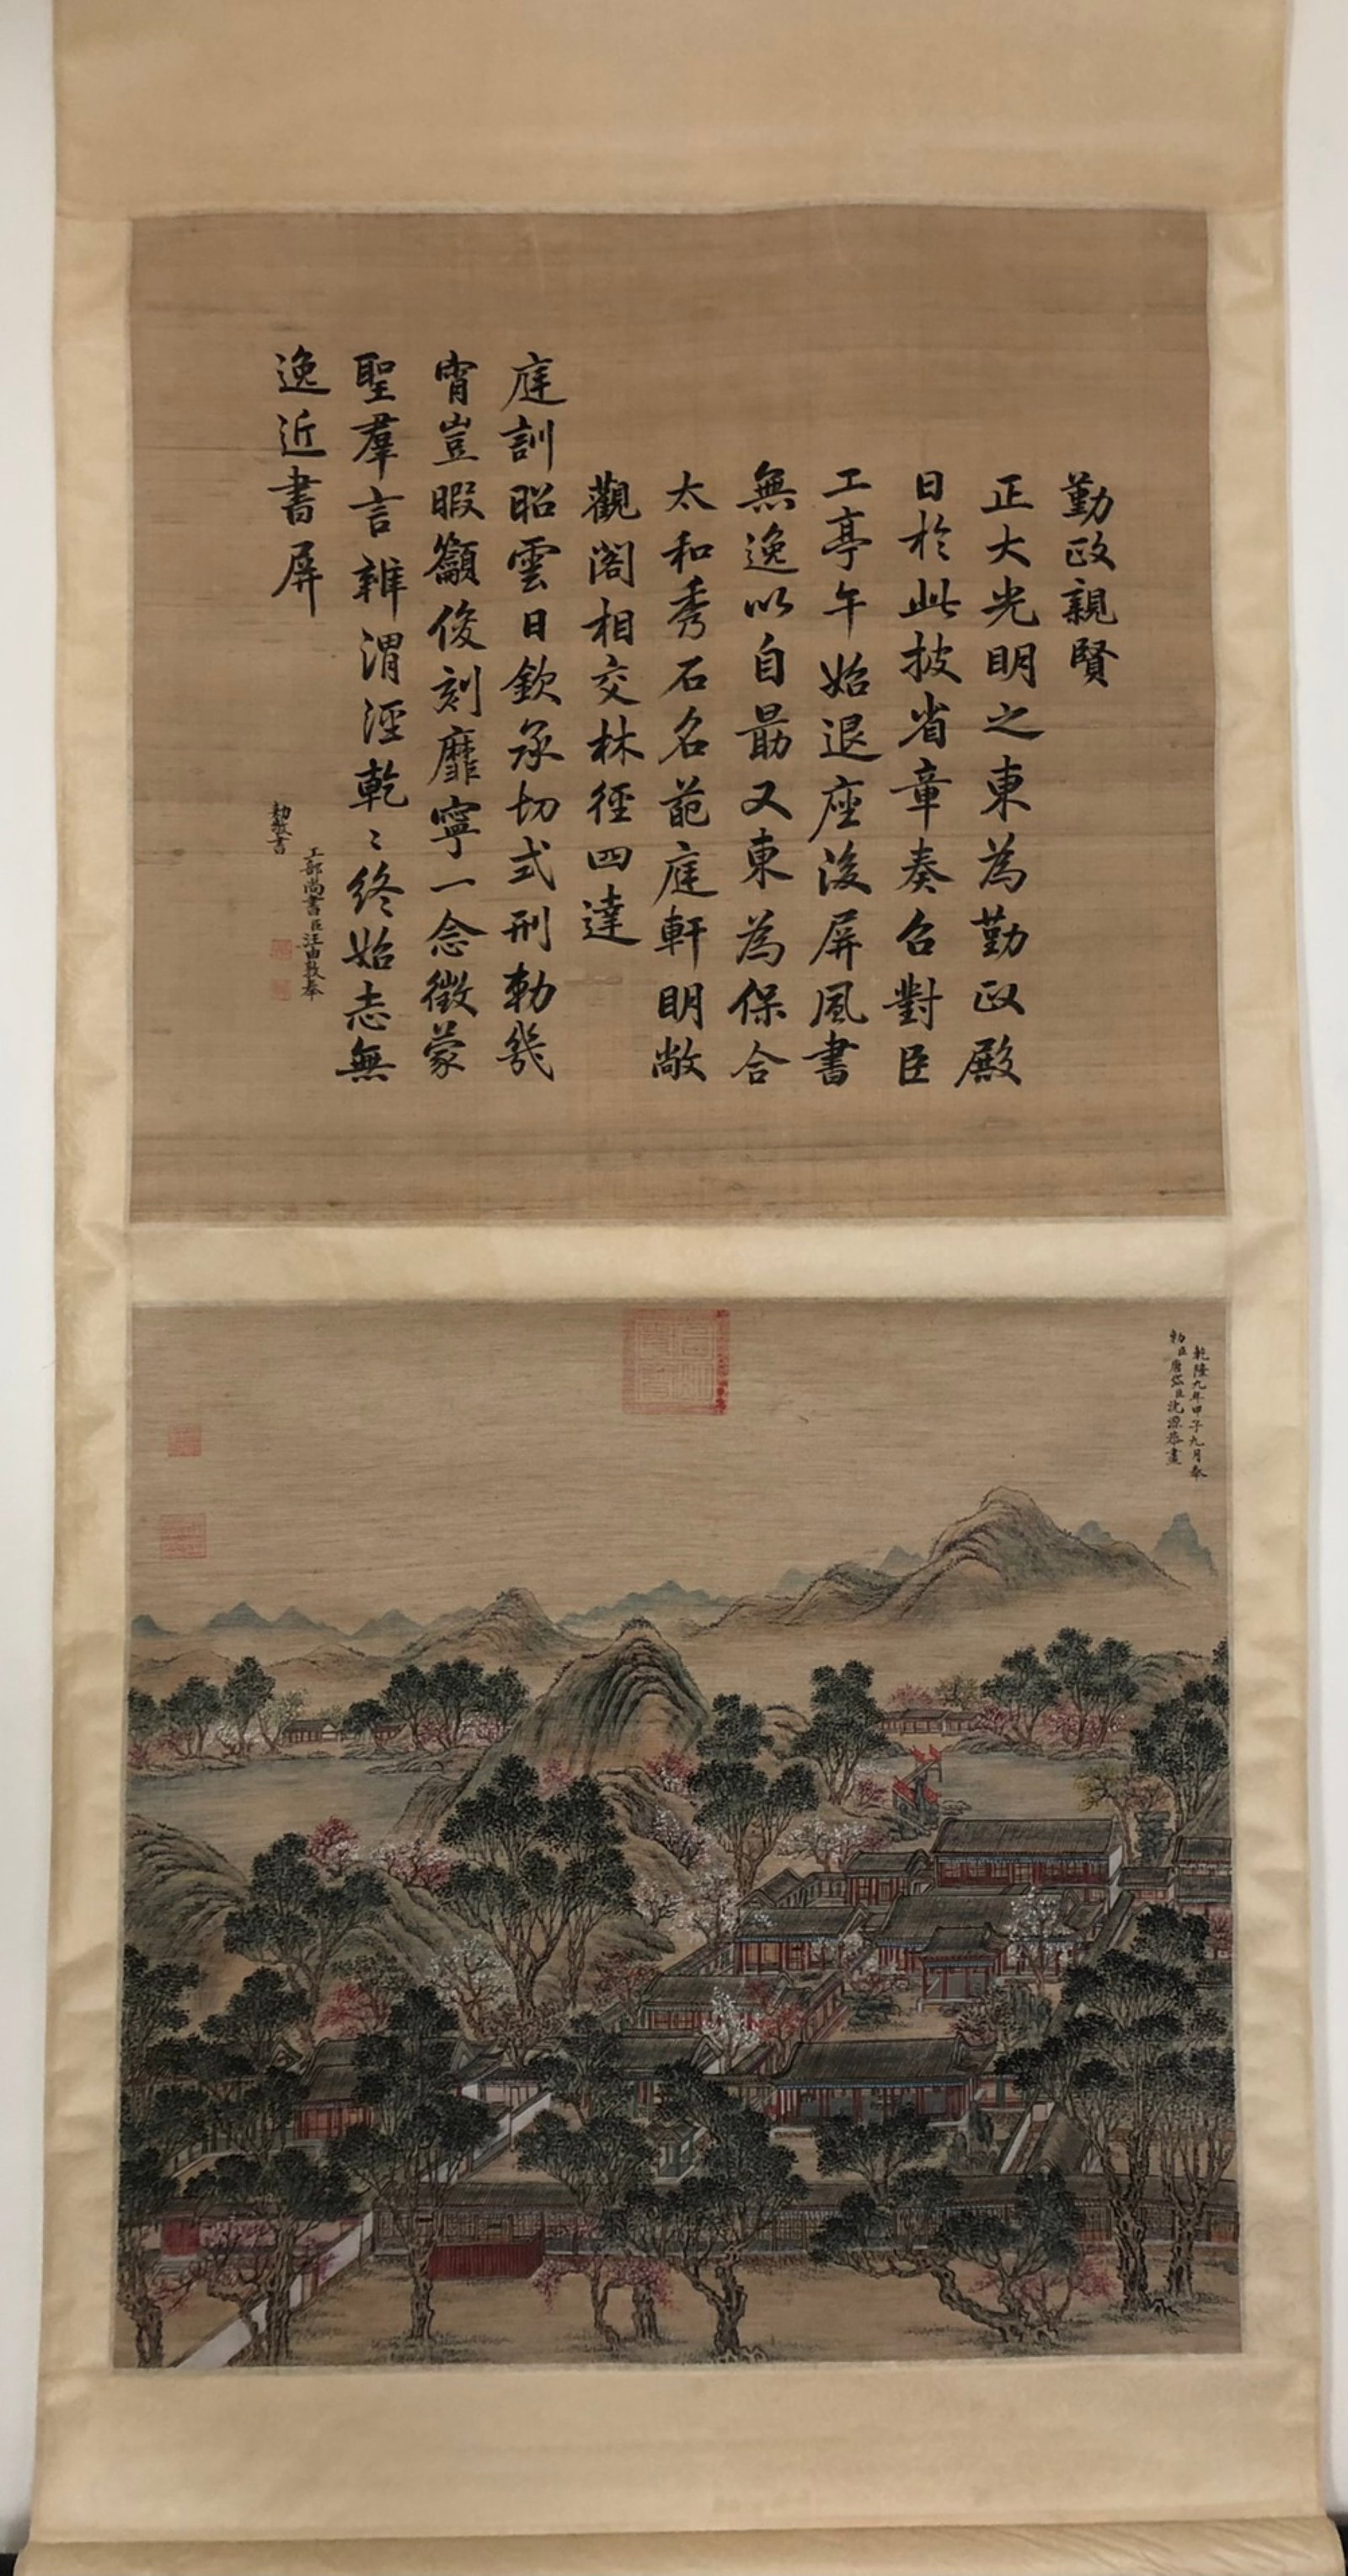 勤政親賢
正大光明之東為勤政殿
日於此披省章奏召對臣
工亭午始退座後屏風書
無逸以自勗又東為保合
太和秀石名葩庭軒明敞
觀閣相交林徑四達
庭訓昭雲日欽承切式刑勅幾
宵豈暇籲俊刻靡寧一念徵蒙
聖羣言雜渭涇乾〻終始志無
逸近書屏
工部尚書臣汪由敦奉
勅敬書
乾隆九年甲子九月奉
勅臣唐岱臣沈源恭畫